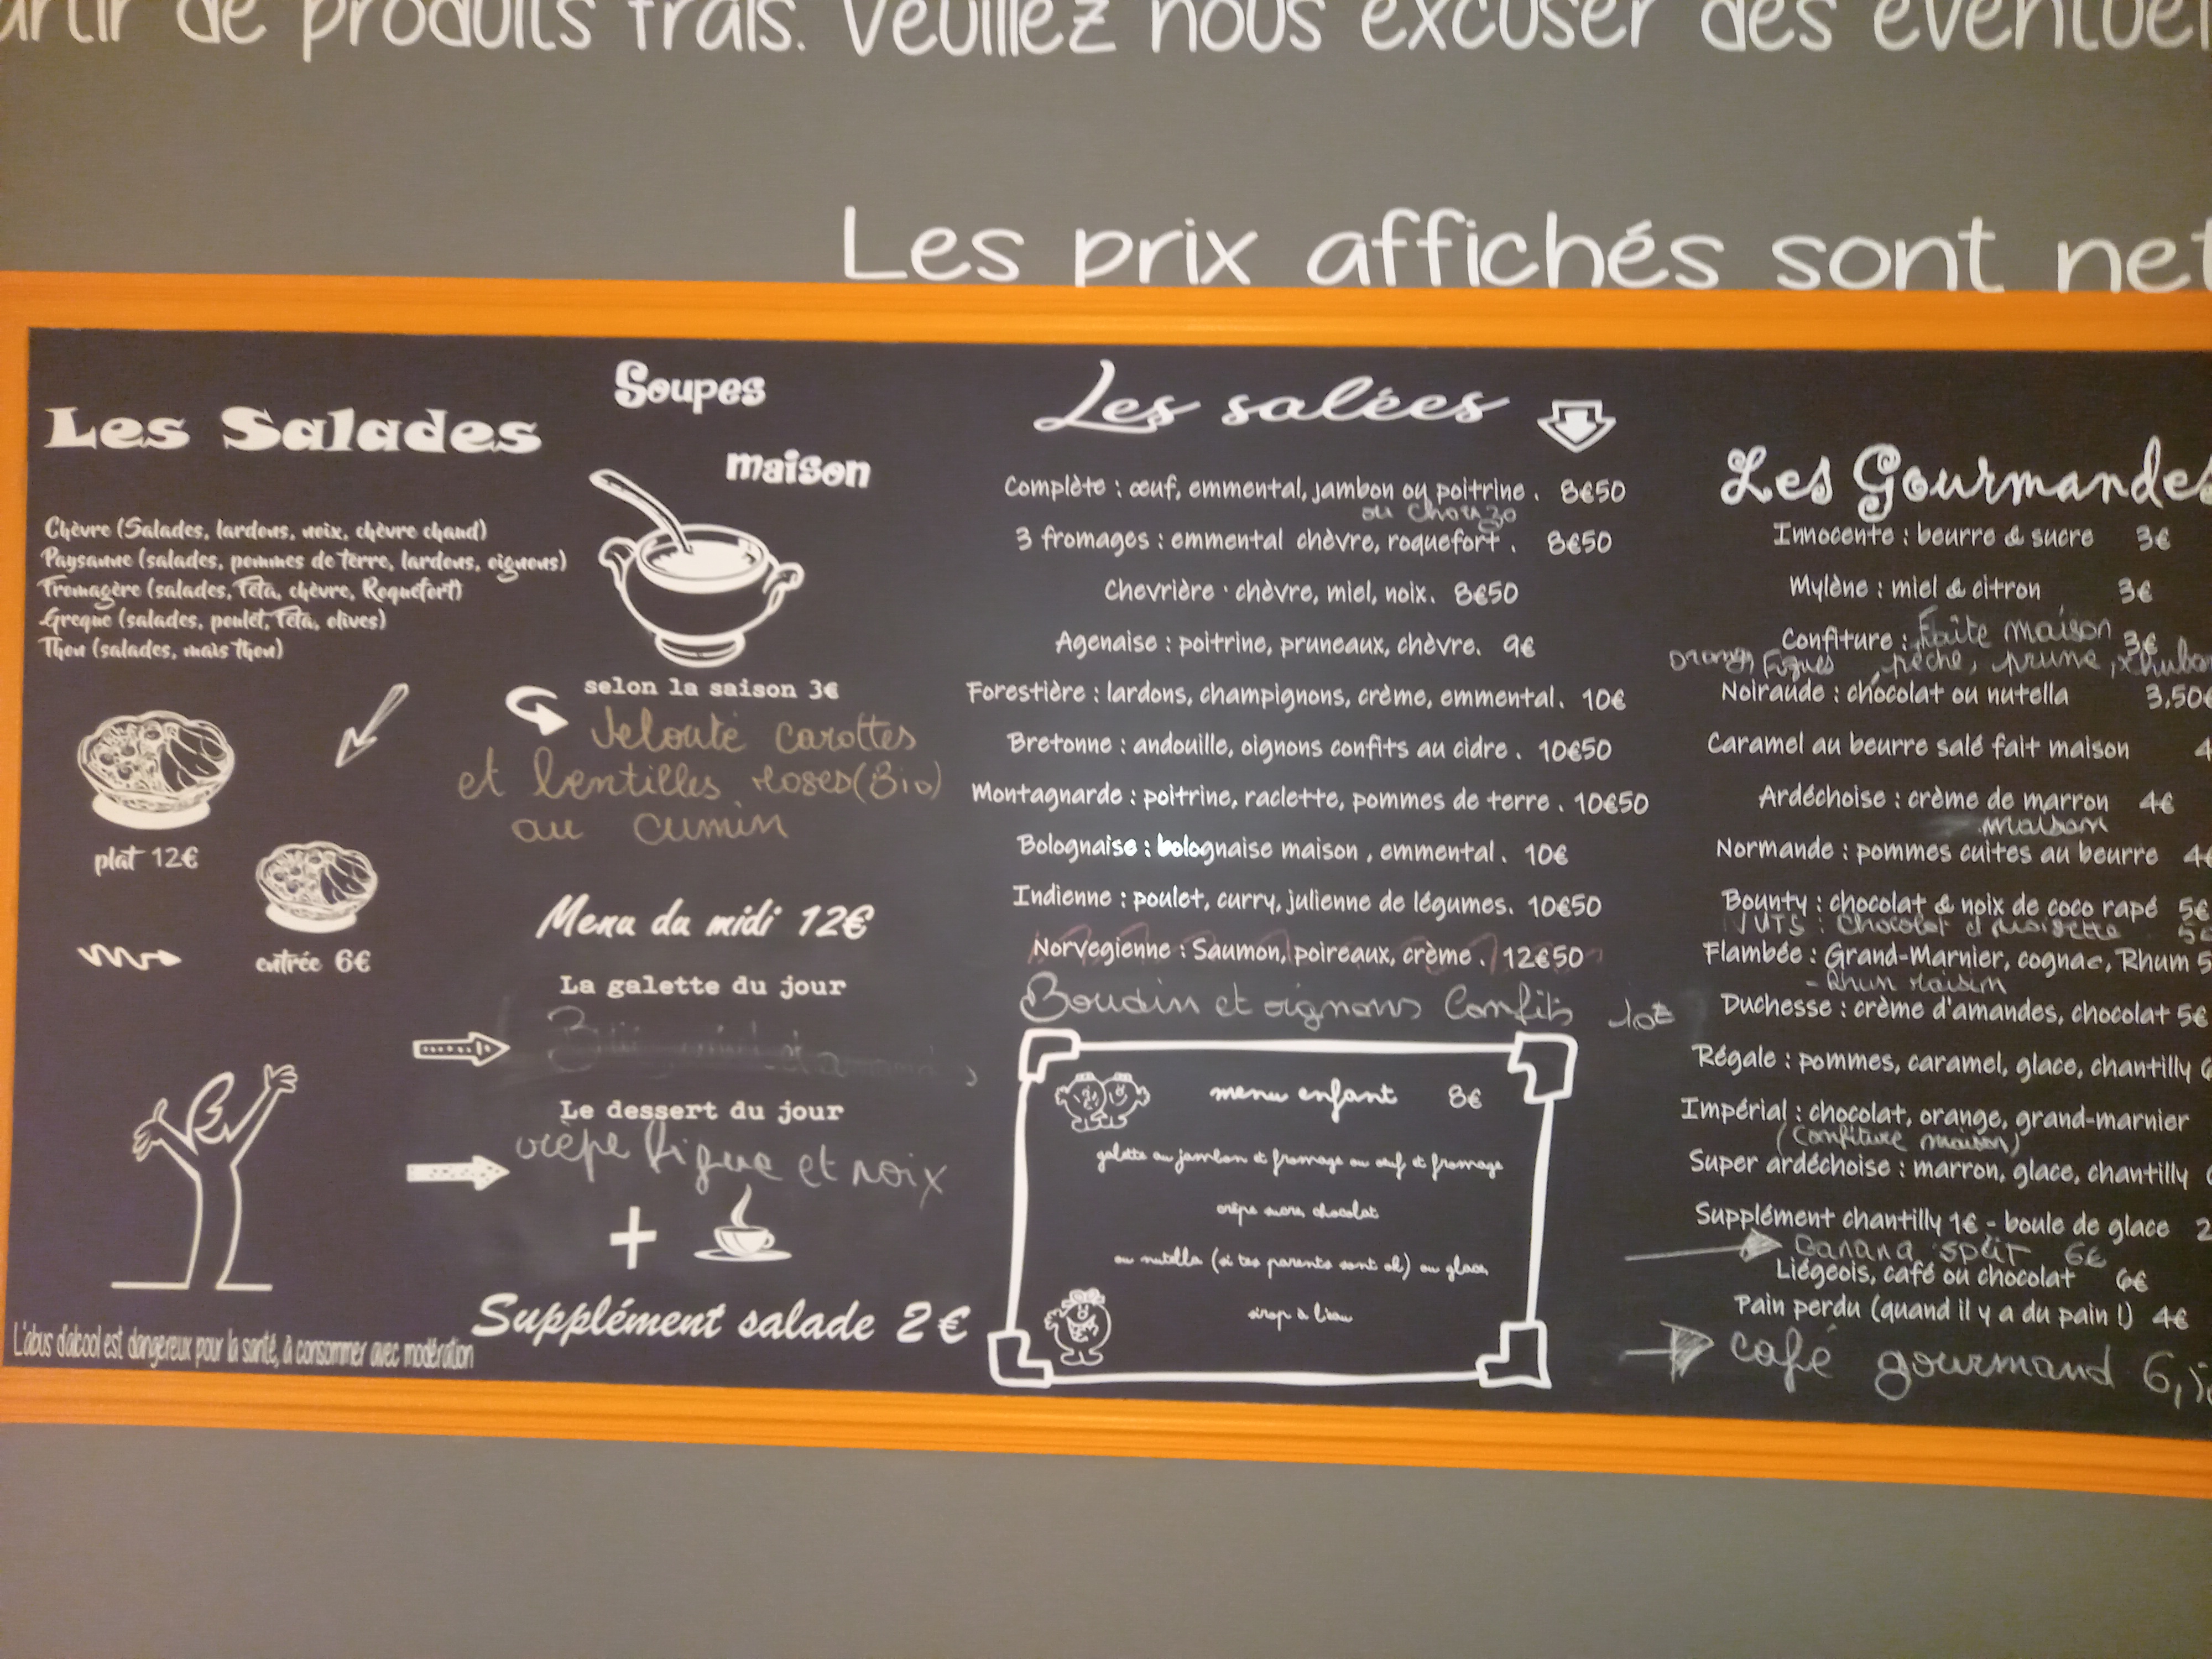 artir de produits frais. Veuillez nous excuser des éventuel
Les prix affichés sont net
Les Salades
Chèvre (Salades, lardons, noix, chèvre chaud)
Paysanne (salades, pommes de terre, lardons, oignons)
Fromagère (salades, Féta, chèvre, Roquefort)
Greque (salades, poulet, Féta, olives)
Thon (salades, maïs thon)
plat 12€
entrée 6€
L'abus d'alcool est dangereux pour la santé, à consommer avec modération
Soupes
maison
selon la saison 3€
Velouté carottes
et lentilles roses (Bio)
au cumin
Menu du midi 12€
La galette du jour
Le dessert du jour
crêpe figue et noix
+
Supplément salade 2€
Les salées
Complète : œuf, emmental, jambon ou poitrine . 8€50
ou chorizo
3 fromages : emmental chèvre, roquefort . 8€50
Chevrière : chèvre, miel, noix. 8€50
Agenaise : poitrine, pruneaux, chèvre. 9€
Forestière : lardons, champignons, crème, emmental. 10€
Bretonne : andouille, oignons confits au cidre . 10€50
Montagnarde : poitrine, raclette, pommes de terre . 10€50
Bolognaise : bolognaise maison , emmental . 10€
Indienne : poulet, curry, julienne de légumes. 10€50
Norvegienne : Saumon, poireaux, crème . 12€50
Boudin et oignons confits 10€
menu enfant 8€
galette au jambon et fromage ou œuf et fromage
crêpe sucre, chocolat
ou nutella (si tes parents sont ok) ou glace
sirop à l'eau
Les Gourmandes
Innocente : beurre & sucre 3€
Mylène : miel & citron 3€
Confiture : Faite maison 3€
orange, Figues, pêche, prune, rhubar
Noiraude : chocolat ou nutella 3,50€
Caramel au beurre salé fait maison 4
Ardéchoise : crème de marron 4€
maison
Normande : pommes cuites au beurre 4€
Bounty : chocolat & noix de coco rapé 5€
NUTS : Chocolat et noisette 5€
Flambée : Grand-Marnier, cognac, Rhum 5
- Rhum raisin
Duchesse : crème d'amandes, chocolat 5€
Régale : pommes, caramel, glace, chantilly 6
Impérial : chocolat, orange, grand-marnier
(Confiture maison)
Super ardéchoise : marron, glace, chantilly
Supplément chantilly 1€ - boule de glace 2
Banana split 6€
Liégeois, café ou chocolat 6€
Pain perdu (quand il y a du pain !) 4€
café gourmand 6,